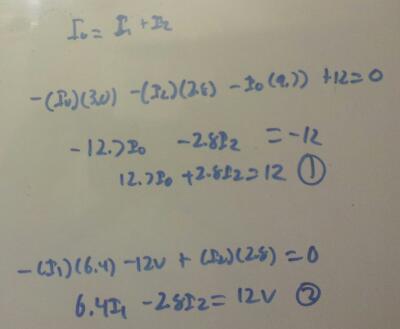 I₀ = I₁ + I₂
-(I₀)(3.0) -(I₂)(2.8) -I₀(9.7) +12=0
-12.7I₀ -2.8I₂ = -12
12.7I₀ +2.8I₂=12 ①
-(I₁)(6.4) -12V + (I₂)(2.8) = 0
6.4I₁ -2.8I₂ = 12V ②